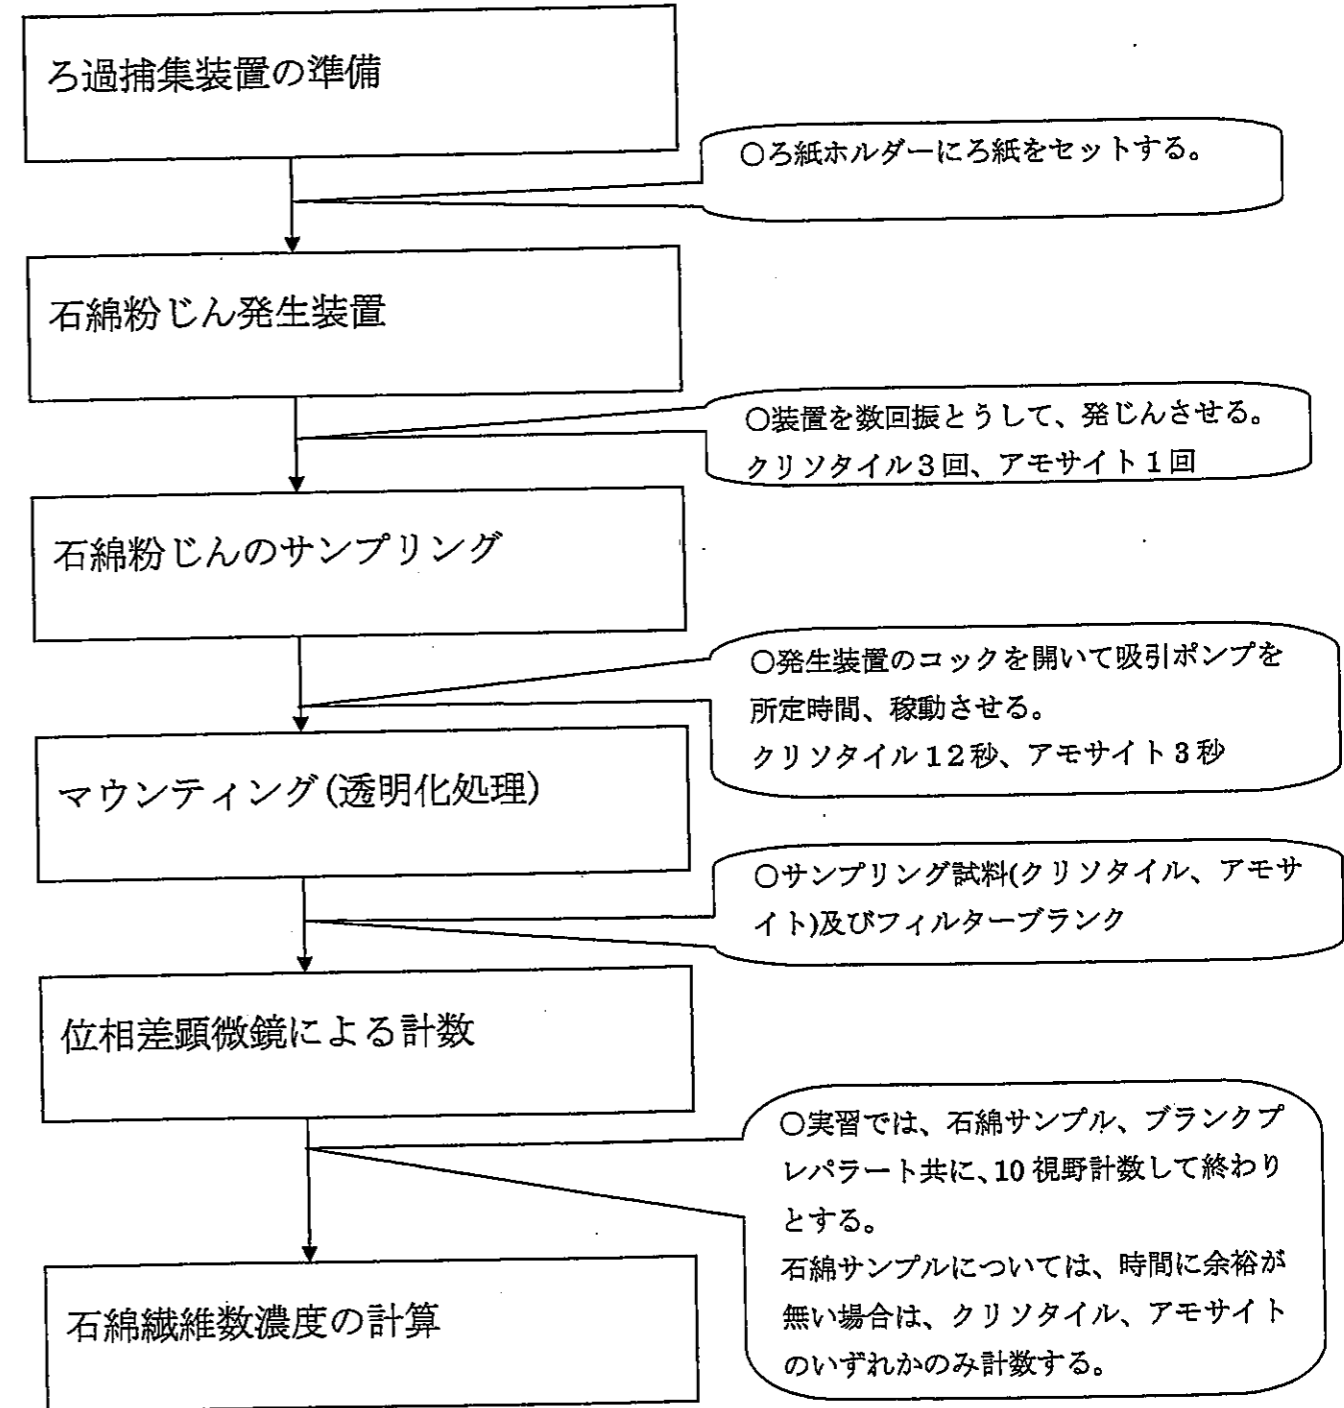 ろ過捕集装置の準備
○ろ紙ホルダーにろ紙をセットする。
石綿粉じん発生装置
○装置を数回振とうして、発じんさせる。
クリソタイル3回、アモサイト1回
石綿粉じんのサンプリング
○発生装置のコックを開いて吸引ポンプを
所定時間、稼動させる。
クリソタイル12秒、アモサイト3秒
マウンティング(透明化処理)
○サンプリング試料(クリソタイル、アモサ
イト)及びフィルターブランク
位相差顕微鏡による計数
○実習では、石綿サンプル、ブランクプ
レパラート共に、10視野計数して終わり
とする。
石綿サンプルについては、時間に余裕が
無い場合は、クリソタイル、アモサイト
のいずれかのみ計数する。
石綿繊維数濃度の計算